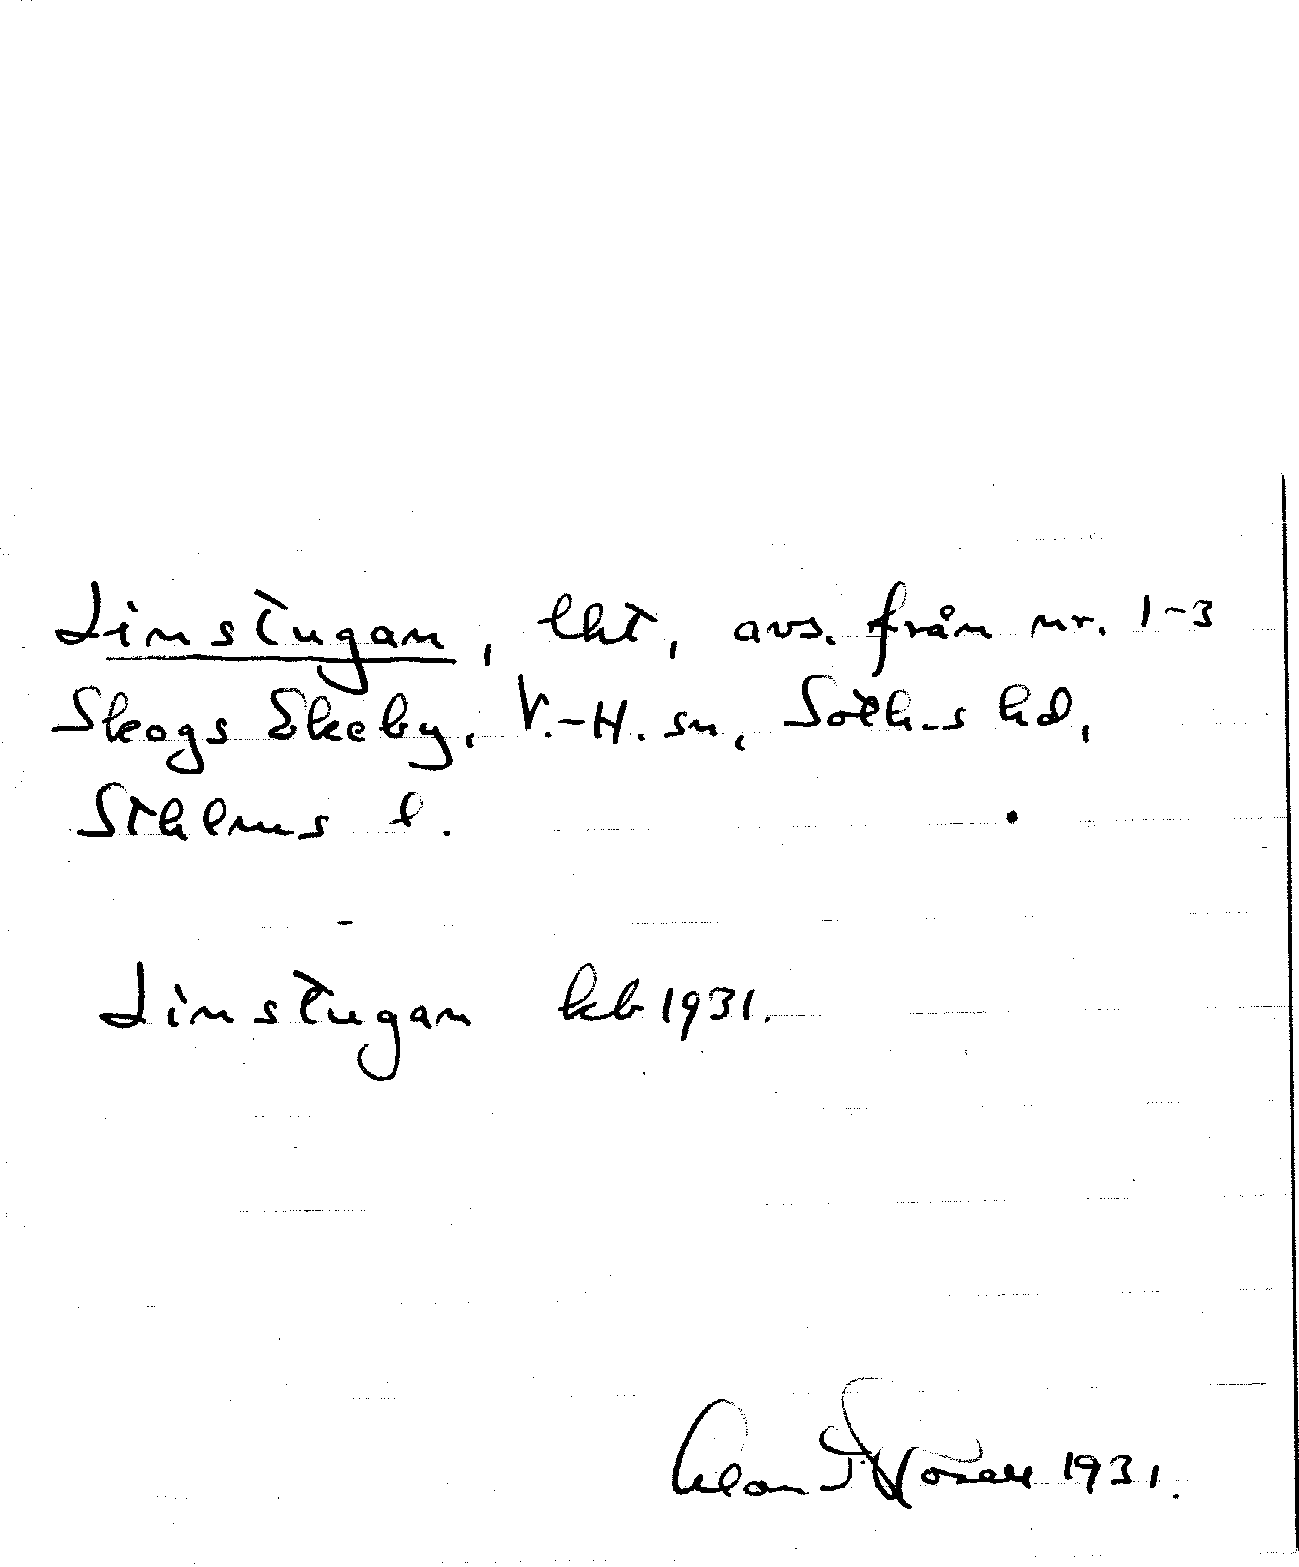 Linstugan, lht, avs. från nr. 1-3
Skogs Ekeby, V.-H. sn, Soth-s hd,
Sthlms l.
Linstugan kb 1931.
1931.